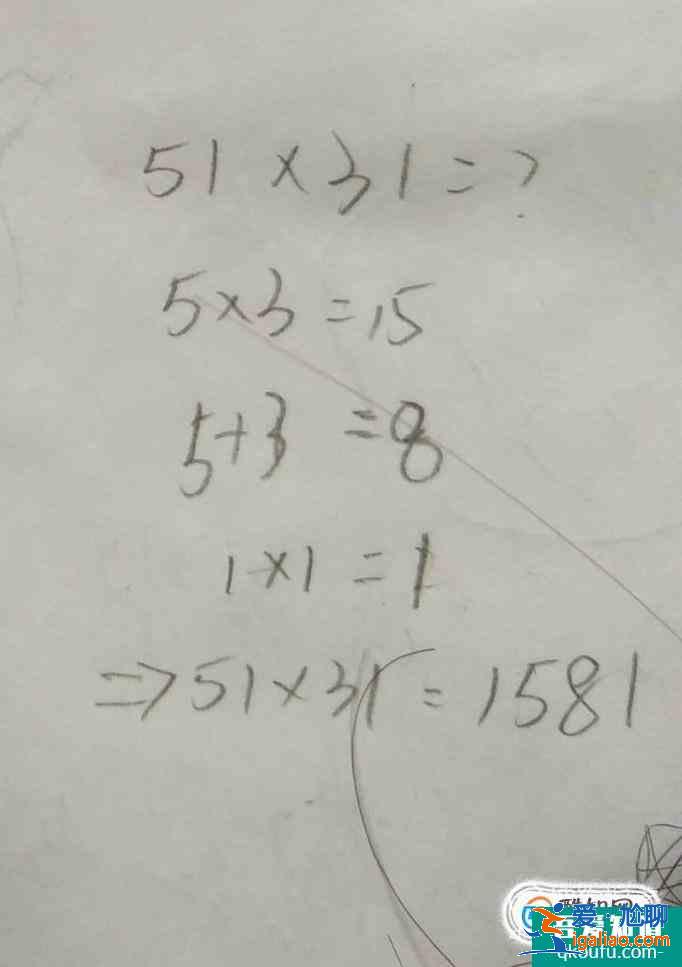 51 × 31 = ?
5×3 = 15
5+3 = 8
1×1 = 1
⇒ 51×31 = 1581
爱尬聊
igaliao.com
qkoufu.com